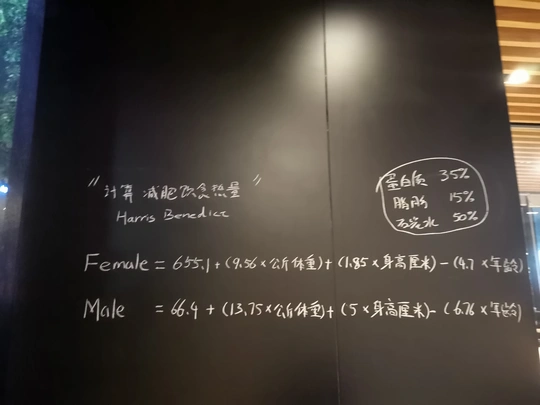 "计算 减肥饮食热量"
Harris Benedict
蛋白质 35%
脂肪 15%
石炭水 50%
Female = 655.1 + (9.56 × 公斤体重) + (1.85 × 身高厘米) - (4.7 × 年龄)
Male = 66.4 + (13.75 × 公斤体重) + (5 × 身高厘米) - (6.76 × 年龄)